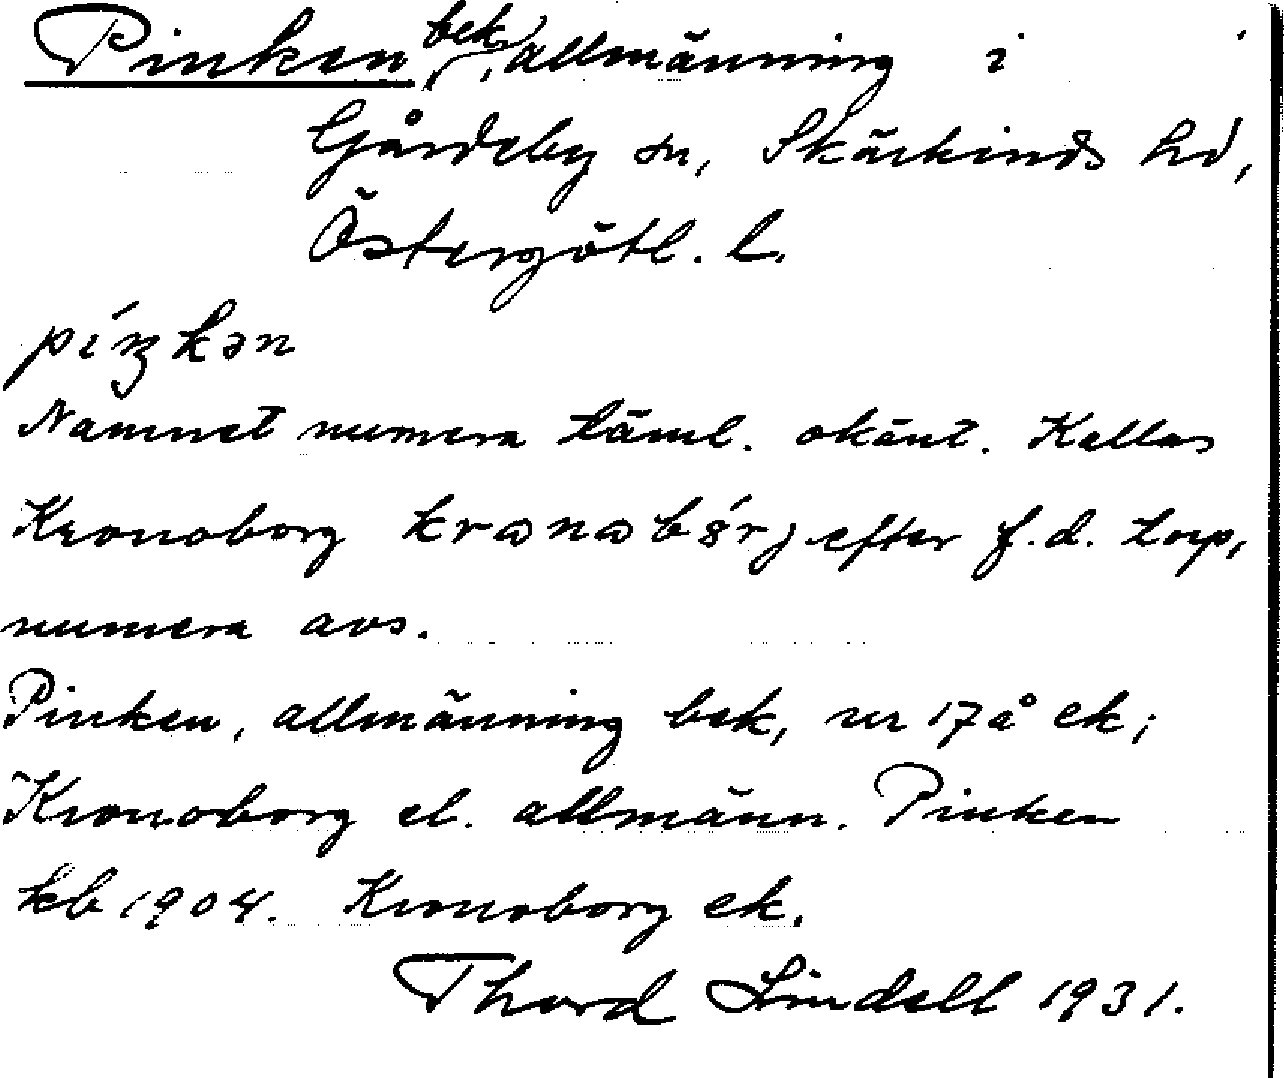 Pinken, bek, allmänning i
Gårdeby sn, Skärkinds hd,
Östergötl. l.
píŋkən
Namnet numera täml. okänt. Kallas
Kronoborg efter f.d. torp,
numera avs.
Pinken, allmänning bek, ur 17å ek;
Kronoborg el. allmänn. Pinken
kb 1904. Kronoborg ek.
Thord Lindell 1931.